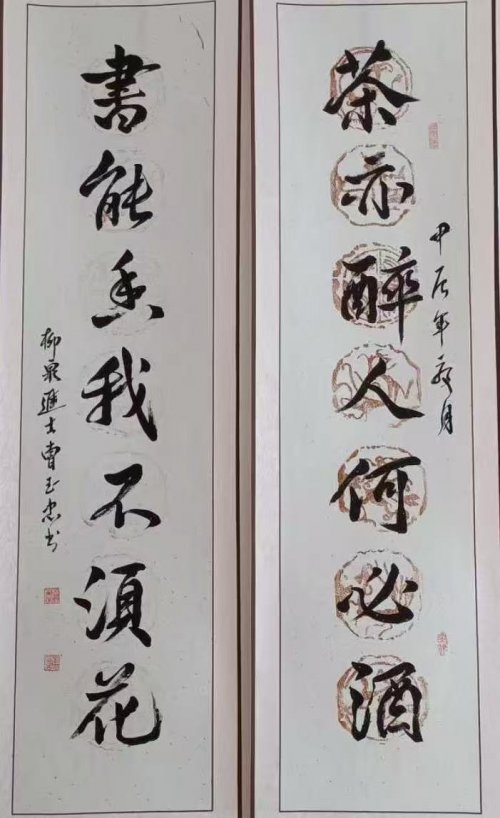 茶亦醉人何必酒
甲辰年夏月
書能香我不須花
柳泉進士曹玉忠书